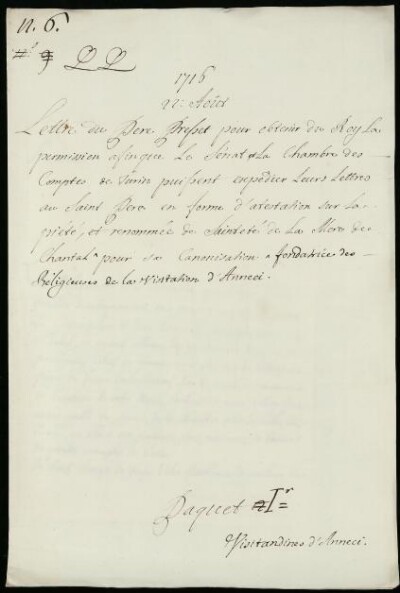 n. 6.
1716
12: Août
Lettre du Pere Presset pour obtenir du Roy La
permission afinque Le Sénat et La Chambre des
Comptes de Turin puissent expédier Leurs Lettres
au Saint Pere en forme d'atestation sur La
pieté, et renommée de Sainteté de La Mere de
Chantal * pour sa Canonisation * fondatrice des
Réligieuses de la Visitation d'Anneci.
Paquet 1.r
Visitandines d'Anneci.